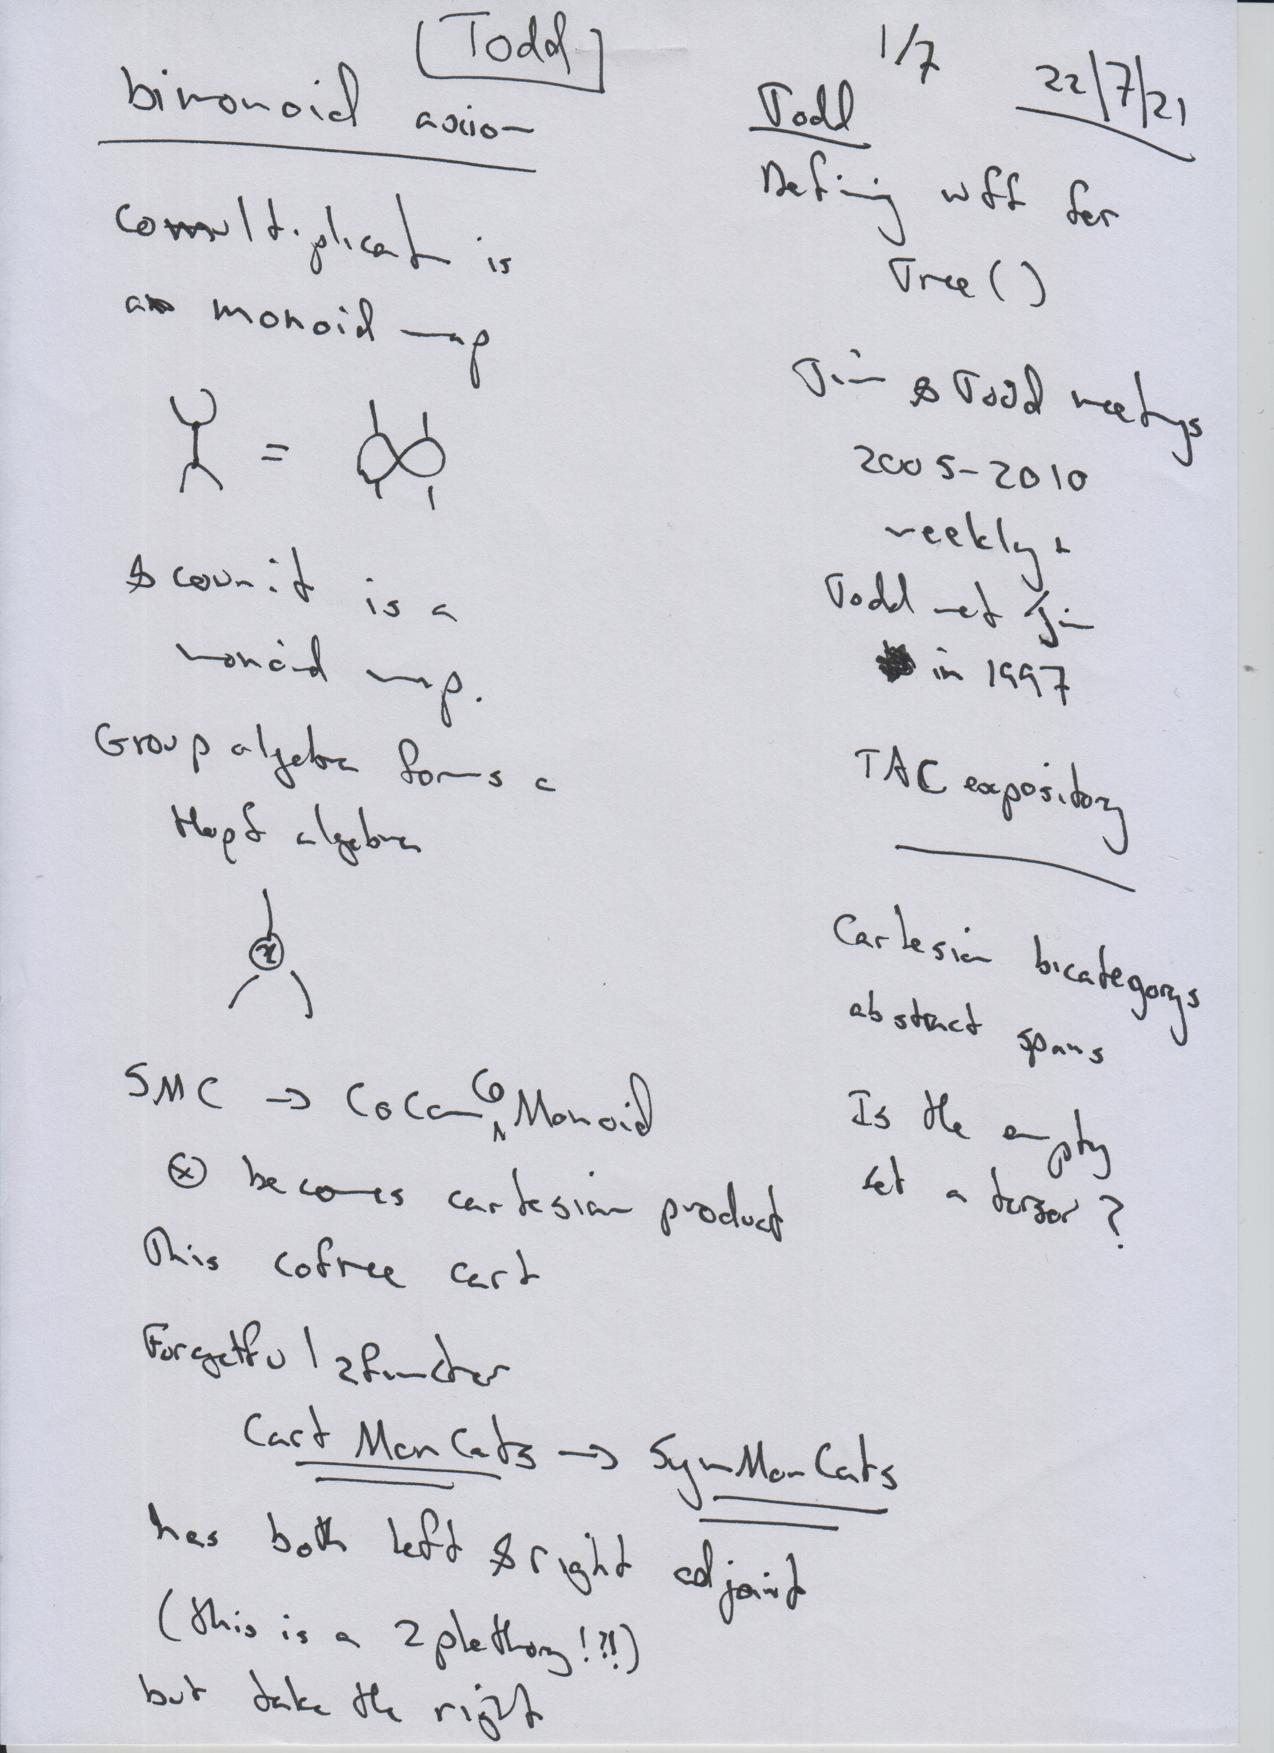 [Todd]
bimonoid axiom
comultiplicat is
a monoid map
=
& counit is a
monoid map.
Group algebra forms a
Hopf algebra
x
SMC → CoCom Co Monoid
⊗ becomes cartesian product
This cofree cart
Forgetful 2functor
Cart Mon Cats → SymMonCats
has both left & right adjoint
(this is a 2plethory!?!!)
but take the right
1/7 22/7/21
Todd
Defining wff for
Tree()
Jim & Todd meetings
2005-2010
weekly
Todd met Jim
in 1997
TAC expository
Cartesian bicategorys
abstract spans
Is the empty
set a torsor?